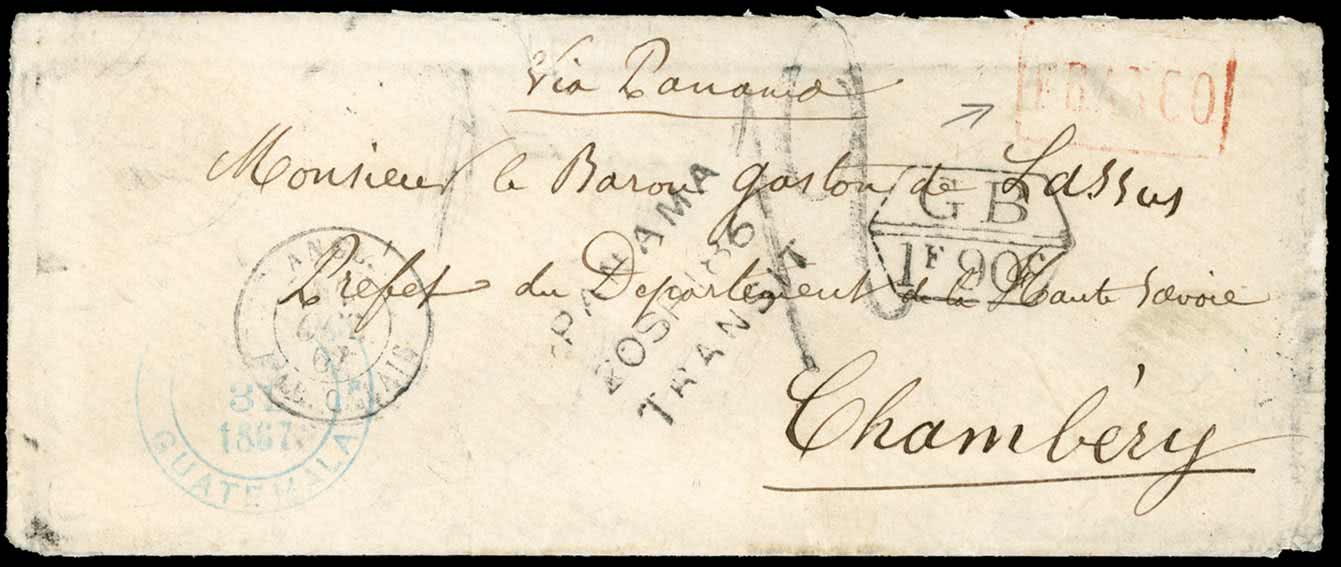 Via Panama
FRANCO
Monsieur le Baron gaston de Lassus
GB
1F 90c
Prefet du Departement de la Haute Savoie
PANAMA
TRANSIT
ANGL.
CALAIS
31
1867
GUATEMALA
Chambéry